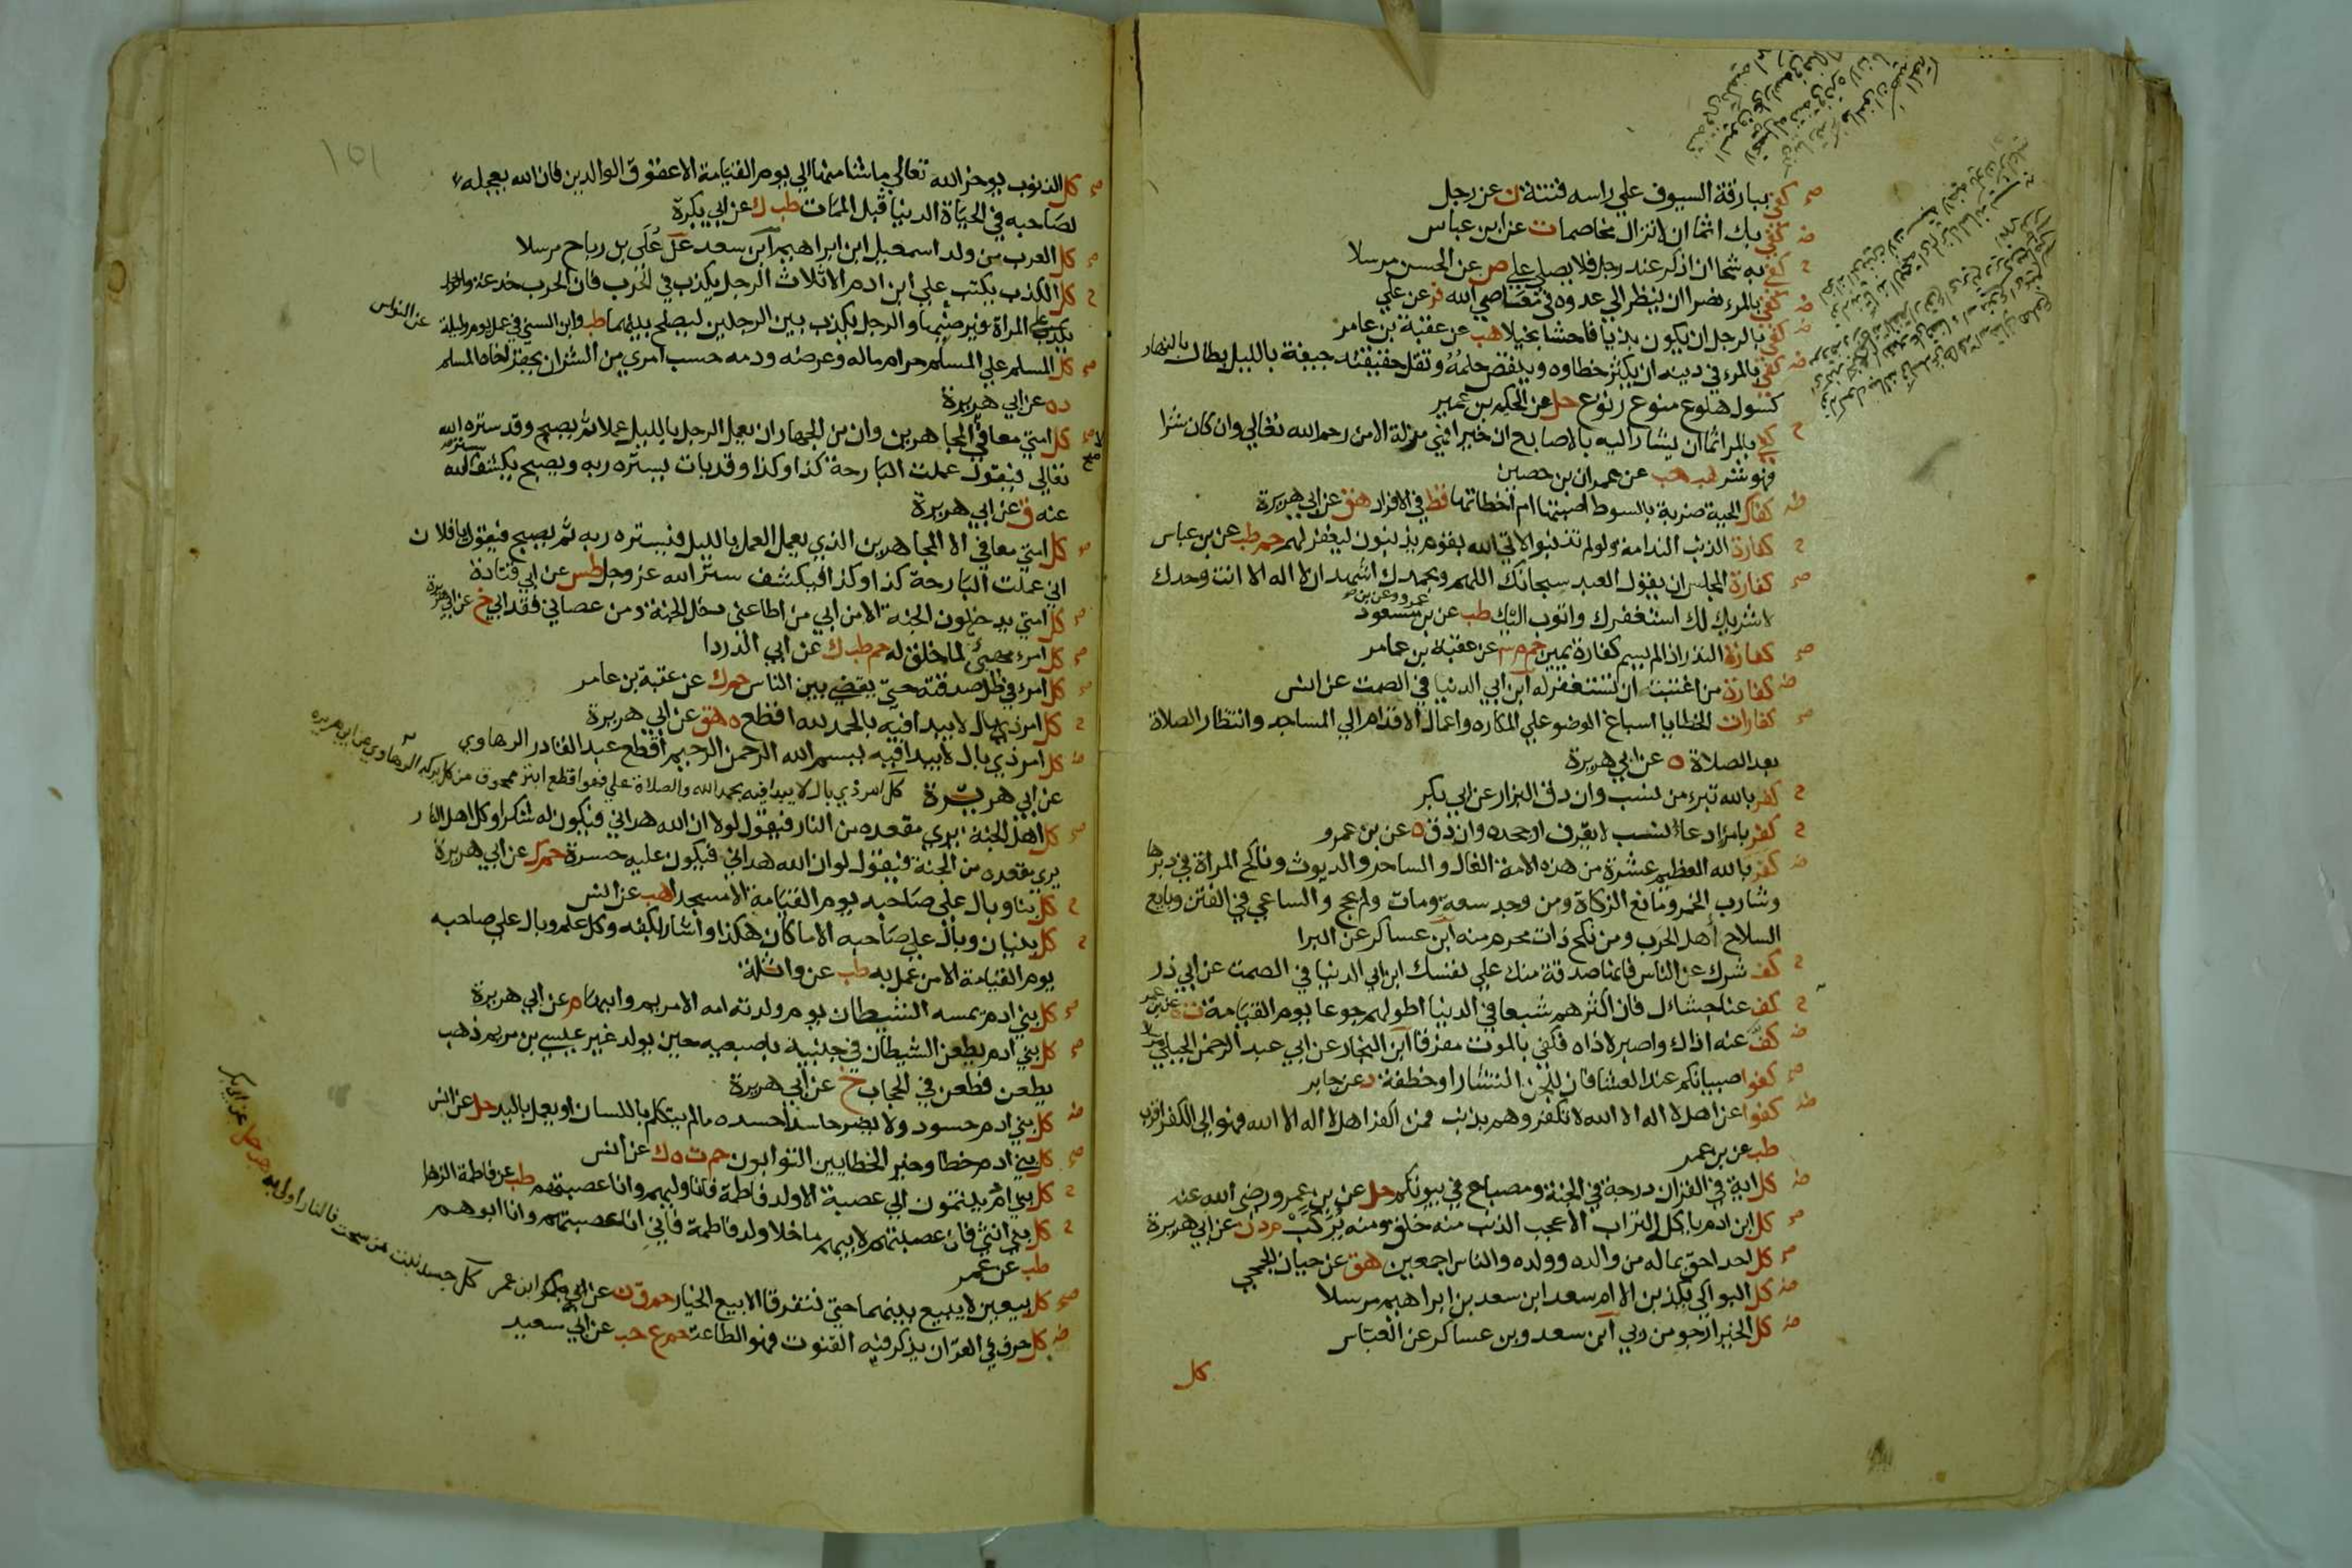 صح كفي ببارقة السيوف علي راسه فتنة ن عن رجل
ض كفي بك اثما ان لا تزال مخاصما ت عن ابن عباس
ح كفي به شحا ان اذكر عند رجل فلا يصلي علي ص عن الحسن مرسلا
ض كفي بالمرء نصرا ان ينظر الي عدوه في معاصي الله فر عن علي
ض كفي بالرجل ان يكون بذيا فاحشا بخيلا هب عن عقبة بن عامر
ض كفي بالمرء في دينه ان يكثر خطاوه وينقص حلمه وتقل حقيقته جيفة بالليل بطال بالنهار
كسول هلوع منوع رتوع حل عن الحكم بن عمير
ح كفي بالمرء اثما ان يشار اليه بالاصابع ان خيرا فهي مزلة الا من رحم الله تعالي وان كان شرا
فهو شر طب هب عن عمران بن حصين
ض كفاك الحية ضربة بالسوط اصبتها ام اخطاتها قط في الافراد هق عن ابي هريرة
ح كفارة الذنب الندامة ولو لم تذنبوا لاتي الله بقوم يذنبون ليغفر لهم حم طب عن بن عباس
صح كفارة المجلس ان يقول العبد سبحانك اللهم وبحمدك اشهد ان لا اله الا انت وحدك
لا شريك لك استغفرك واتوب اليك طب عن بن عمرو وعن بن مسعود
صح كفارة النذر اذا لم يسم كفارة يمين حم م عن عقبة بن عامر
ض كفارة من اغتبت ان تستغفر له ابن ابي الدنيا في الصمت عن انس
صح كفارات الخطايا اسباغ الوضو علي المكاره واعمال الاقدام الي المساجد وانتظار الصلاة
بعد الصلاة ه عن ابي هريرة
ح كفر بالله تبرء من نسب وان دق البزار عن ابي بكر
ح كفر بامرء ادعاء نسب لا يعرف او جحده وان دق ه عن بن عمرو
ض كفر بالله العظيم عشرة من هذه الامة الغال والساحر والديوث وناكح المراة في دبرها
وشارب الخمر ومانع الزكاة ومن وجد سعة ومات ولم يحج والساعي في الفتن وبايع
السلاح اهل الحرب ومن نكح ذات محرم منه ابن عساكر عن البرا
ح كف شرك عن الناس فانها صدقة منك علي نفسك ابن ابي الدنيا في الصمت عن ابي ذر
ح كف عنا جشاءك فان اكثرهم شبعا في الدنيا اطولهم جوعا يوم القيامة ت ه عن بن عمر
ض كف عنه اذاك واصبر لاذاه فكفي بالموت مفرقا ابن النجار عن ابي عبد الرحمن الحبلي مرسلا
صح كفوا صبيانكم عند العشا فان للجن انتشارا وخطفة د عن جابر
ض كفوا عن اهل لا اله الا الله لا تكفروهم بذنب فمن اكفر اهل لا اله الا الله فهو الي الكفر اقرب
طب عن بن عمر
ض كل اية في القران درجة في الجنة ومصباح في بيوتكم حل عن بن عمرو رضي الله عنه
صح كل ابن ادم ياكل التراب الا عجب الذنب منه خلق ومنه يركب م د ن عن ابي هريرة
صح كل احد احق بماله من والده وولده والناس اجمعين هق عن حبان الجمحي
ض كل البواكي يكذبن الا ام سعد ابن سعد بن ابراهيم مرسلا
ض كل الخير ارجو من ربي ابن سعد وبن عساكر عن العباس
كل
١٥١
صح كل الذنوب يوخر الله تعالي ما شا منها الي يوم القيامة الا عقوق الوالدين فان الله يعجله
لصاحبه في الحياة الدنيا قبل الممات طب ك عن ابي بكرة
صح كل العرب من ولد اسمعيل ابن ابراهيم ابن سعد عن علي بن رباح مرسلا
ح كل الكذب يكتب علي ابن ادم الا ثلاث الرجل يكذب في الحرب فان الحرب خدعة والرجل
يكذب علي المراة فيرضيها والرجل يكذب بين الرجلين ليصلح بينهما طب وابن السني في عمل يوم وليلة عن النواس
صح كل المسلم علي المسلم حرام ماله وعرضه ودمه حسب امري من الشر ان يحقر اخاه المسلم
د ه عن ابي هريرة
كل امتي معافي الا المجاهرين وان من الجهار ان يعمل الرجل بالليل عملا ثم يصبح وقد ستره الله
تعالي فيقول عملت البارحة كذا وكذا وقد بات يستره ربه ويصبح يكشف ستر الله
عنه ق عن ابي هريرة
صح كل امتي معافي الا المجاهرين الذي يعمل العمل بالليل فيستره ربه ثم يصبح فيقول يا فلان
اني عملت البارحة كذا وكذا فيكشف ستر الله عز وجل طس عن ابي قتادة
صح كل امتي يدخلون الجنة الا من ابي من اطاعني دخل الجنة ومن عصاني فقد ابي خ عن ابي هريرة
صح كل امرء مهيئ لما خلق له حم طب ك عن ابي الدردا
صح كل امرء في ظل صدقته حتي يقضي بين الناس حم ك عن عقبة بن عامر
ح كل امر ذي بال لا يبدا فيه بالحمد لله اقطع ه هق عن ابي هريرة
ض كل امر ذي بال لا يبدا فيه ببسم الله الرحمن الرحيم اقطع عبد القادر الرهاوي
عن ابي هريرة كل امر ذي بال لا يبدا فيه بحمد الله والصلاة علي فهو اقطع ابتر ممحوق من كل بركة الرهاوي عن ابي هريرة
صح كل اهل الجنة يري مقعده من النار فيقول لولا ان الله هداني فيكون له شكرا وكل اهل النار
يري مقعده من الجنة فيقول لو ان الله هداني فيكون عليه حسرة حم ك عن ابي هريرة
ح كل بنا وبال علي صاحبه يوم القيامة الا مسجدا هب عن انس
ح كل بنيان وبال علي صاحبه الا ما كان هكذا واشار بكفه وكل علم وبال علي صاحبه
يوم القيامة الا من عمل به طب عن واثلة
صح كل بني ادم يمسه الشيطان يوم ولدته امه الا مريم وابنها م عن ابي هريرة
صح كل بني ادم يطعن الشيطان في جنبيه باصبعيه حين يولد غير عيسي بن مريم ذهب
يطعن فطعن في الحجاب خ عن ابي هريرة
ض كل بني ادم حسود ولا يضر حاسدا حسده ما لم يتكلم باللسان او يعمل باليد حل عن انس
صح كل بني ادم خطا وخير الخطايين التوابون حم ت ه ك عن انس
ح كل بني ام ينتمون الي عصبة الا ولد فاطمة فانا وليهم وانا عصبتهم طب عن فاطمة الزهرا
ح كل بني انثي فان عصبتهم لابيهم ما خلا ولد فاطمة فاني انا عصبتهم وانا ابوهم
طب عن عمر
صح كل بيعين لا يبيع بينهما حتي يتفرقا الا بيع الخيار حم ق ن عن ابن عمر كل جسد نبت من سحت فالنار اولي به حل عن ابي بكر
ض كل حرف في القران يذكر فيه القنوت فهو الطاعة حم ع حب عن ابي سعيد